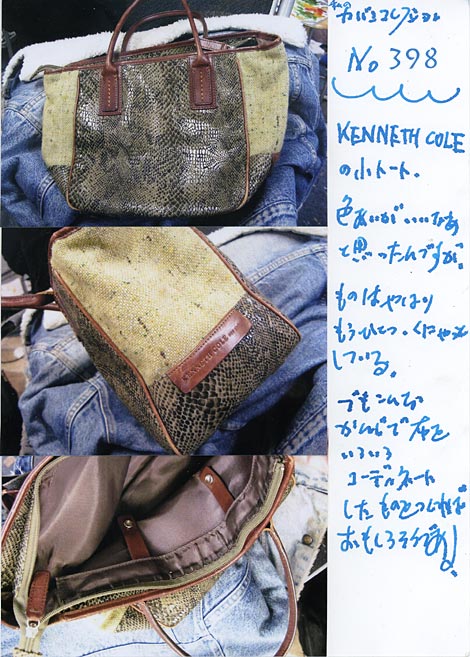 私のカバンコレクション
No 398
KENNETH COLE
の小トート.
色あいがいいなあ
と思ったんですが.
ものはやはり
もうひとつ.
している。
でもこんな
かんじで
いろいろ
コーディネート
したものをつければ
おもしろそうである!
KENNETH COLE